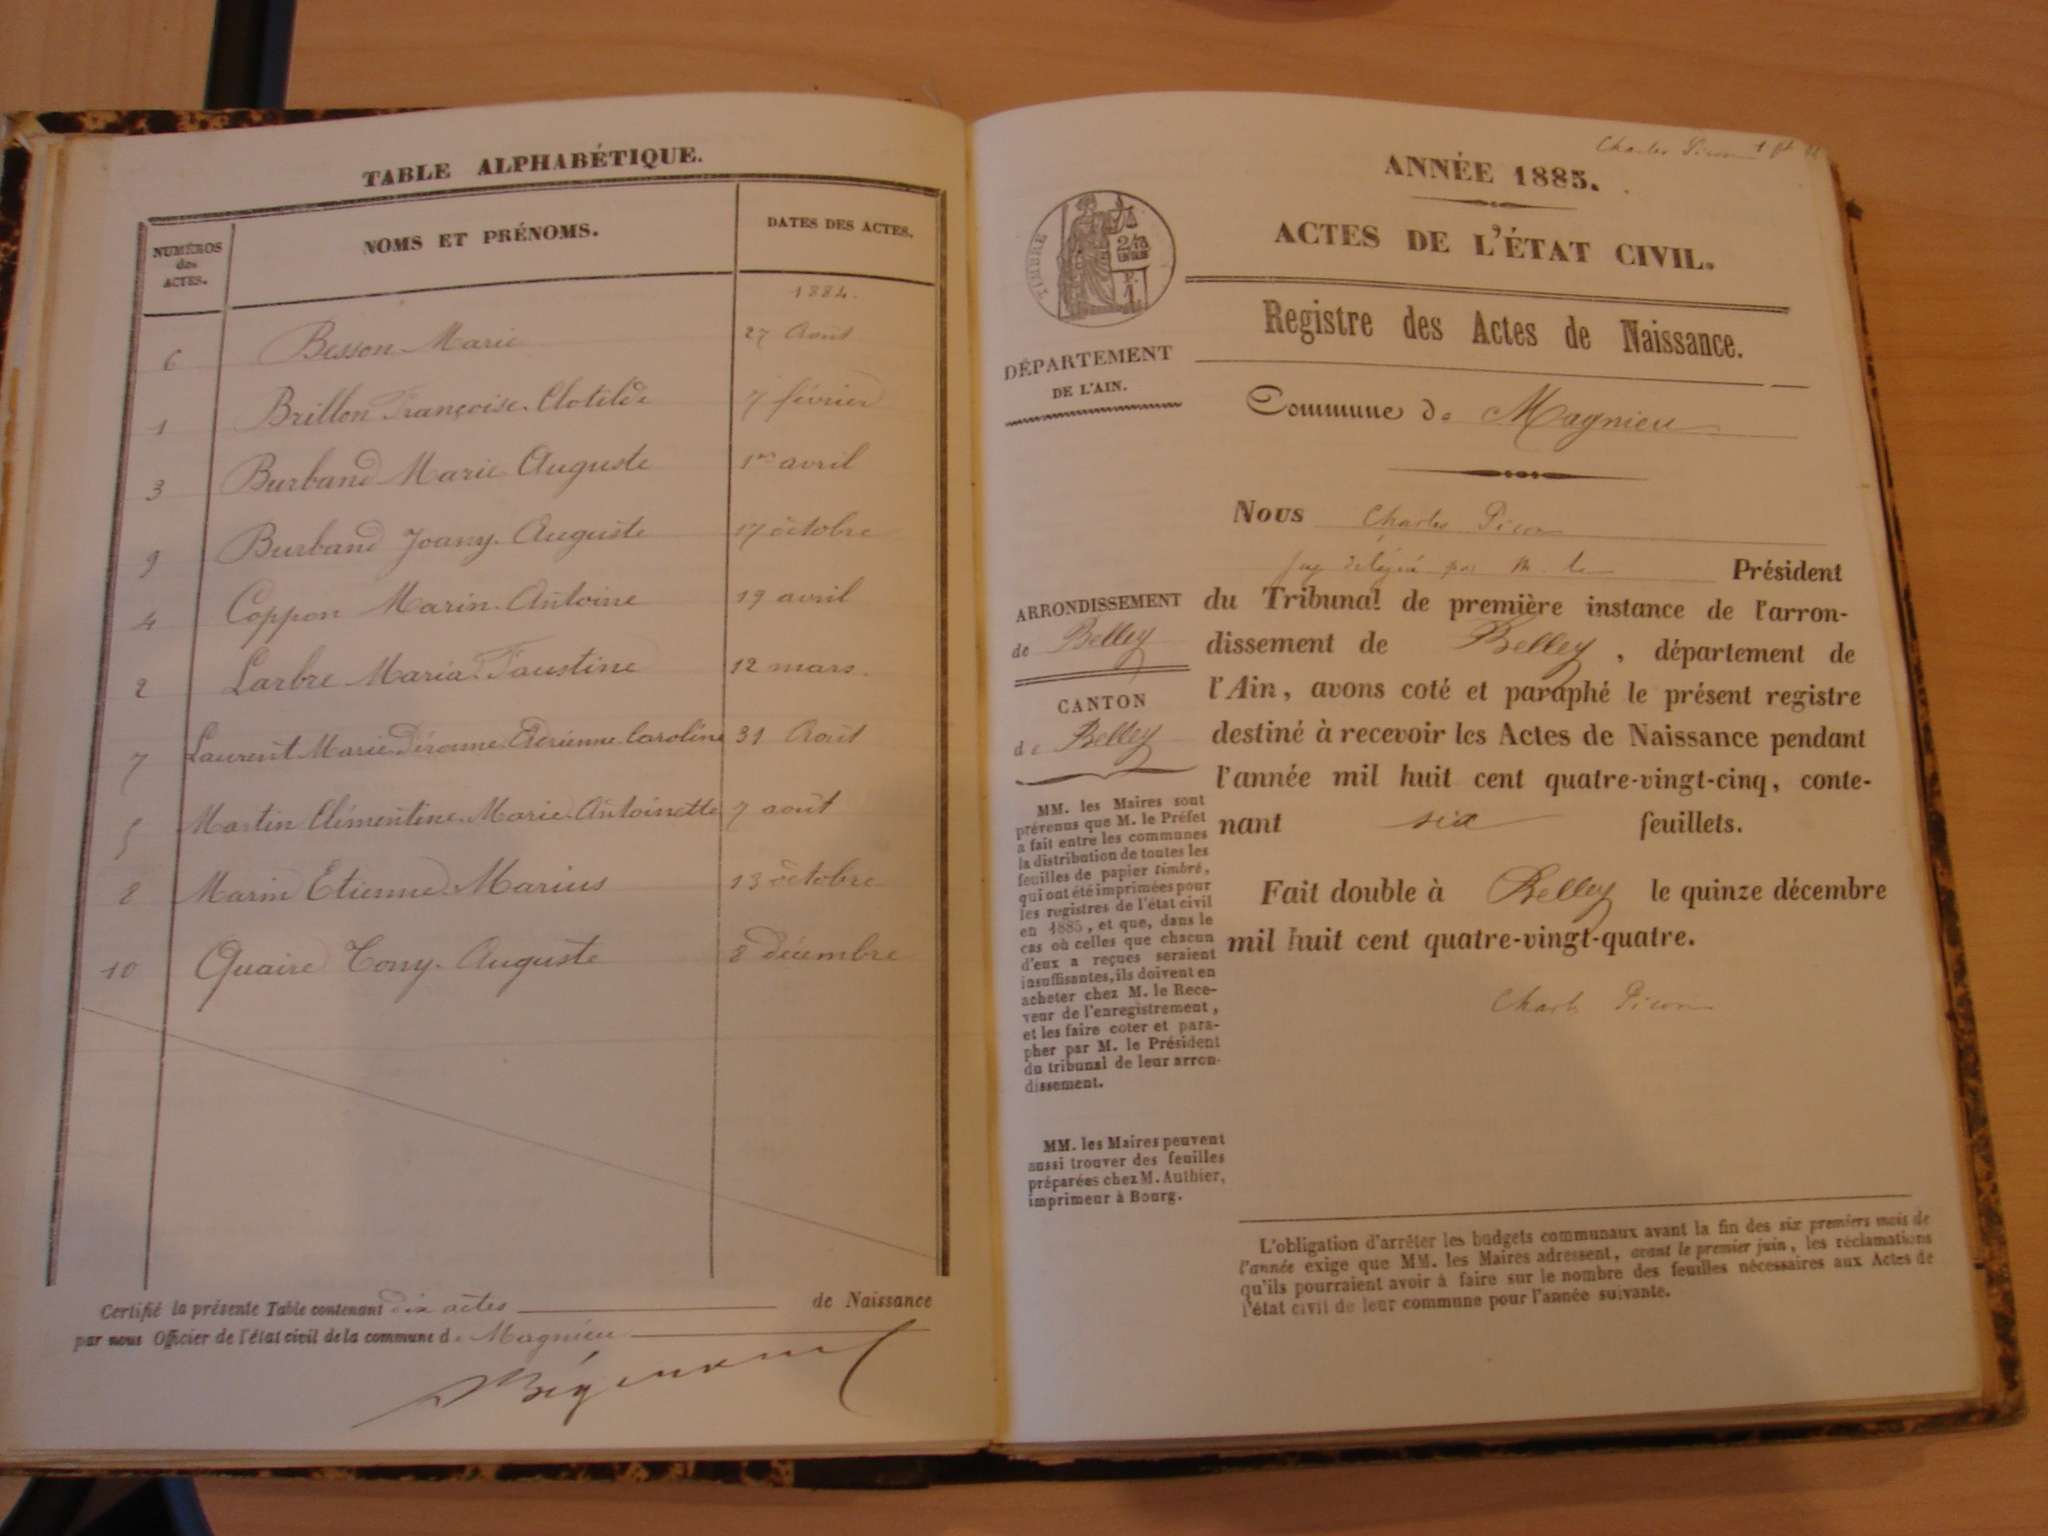 TABLE ALPHABÉTIQUE.
NUMÉROS
des
ACTES.
NOMS ET PRÉNOMS.
DATES DES ACTES.
1884.
6 Besson Marie 27 Août
1 Brillon Françoise Clotilde 7 février
3 Burband Marie Auguste 1er avril
9 Burband Joany Auguste 17 octobre
4 Coppon Marin Antoine 19 avril
2 Larbre Maria Faustine 12 mars
7 Laurent Marie Caroline 31 Août
5 Martin Clémentine Marie Antoinette 7 août
8 Marin Etienne Marius 13 octobre
10 Quaire Tony Auguste 8 décembre
Certifié la présente Table contenant dix actes de Naissance
par nous Officier de l'état civil de la commune de Magnieu
Charles Picon
ANNÉE 1885.
ACTES DE L'ÉTAT CIVIL.
TIMBRE
Registre des Actes de Naissance.
DÉPARTEMENT
DE L'AIN.
Commune de Magnieu
Nous Charles Picon
juge délégué par M. le Président
du Tribunal de première instance de l'arron-
dissement de Belley, département de
l'Ain, avons coté et paraphé le présent registre
destiné à recevoir les Actes de Naissance pendant
l'année mil huit cent quatre-vingt-cinq, conte-
nant six feuillets.
Fait double à Belley le quinze décembre
mil huit cent quatre-vingt-quatre.
Charles Picon
ARRONDISSEMENT
de Belley
CANTON
de Belley
MM. les Maires sont
prévenus que M. le Préfet
a fait entre les communes
la distribution de toutes les
feuilles de papier timbré,
qui ont été imprimées pour
les registres de l'état civil
en 1885, et que, dans le
cas où celles que chacun
d'eux a reçues seraient
insuffisantes, ils doivent en
acheter chez M. le Rece-
veur de l'enregistrement,
et les faire coter et para-
pher par M. le Président
du tribunal de leur arron-
dissement.
MM. les Maires peuvent
aussi trouver des feuilles
préparées chez M. Authier,
imprimeur à Bourg.
L'obligation d'arrêter les budgets communaux avant la fin des six premiers mois de
l'année exige que MM. les Maires adressent, avant le premier juin, les réclamations
qu'ils pourraient avoir à faire sur le nombre des feuilles nécessaires aux Actes de
l'état civil de leur commune pour l'année suivante.